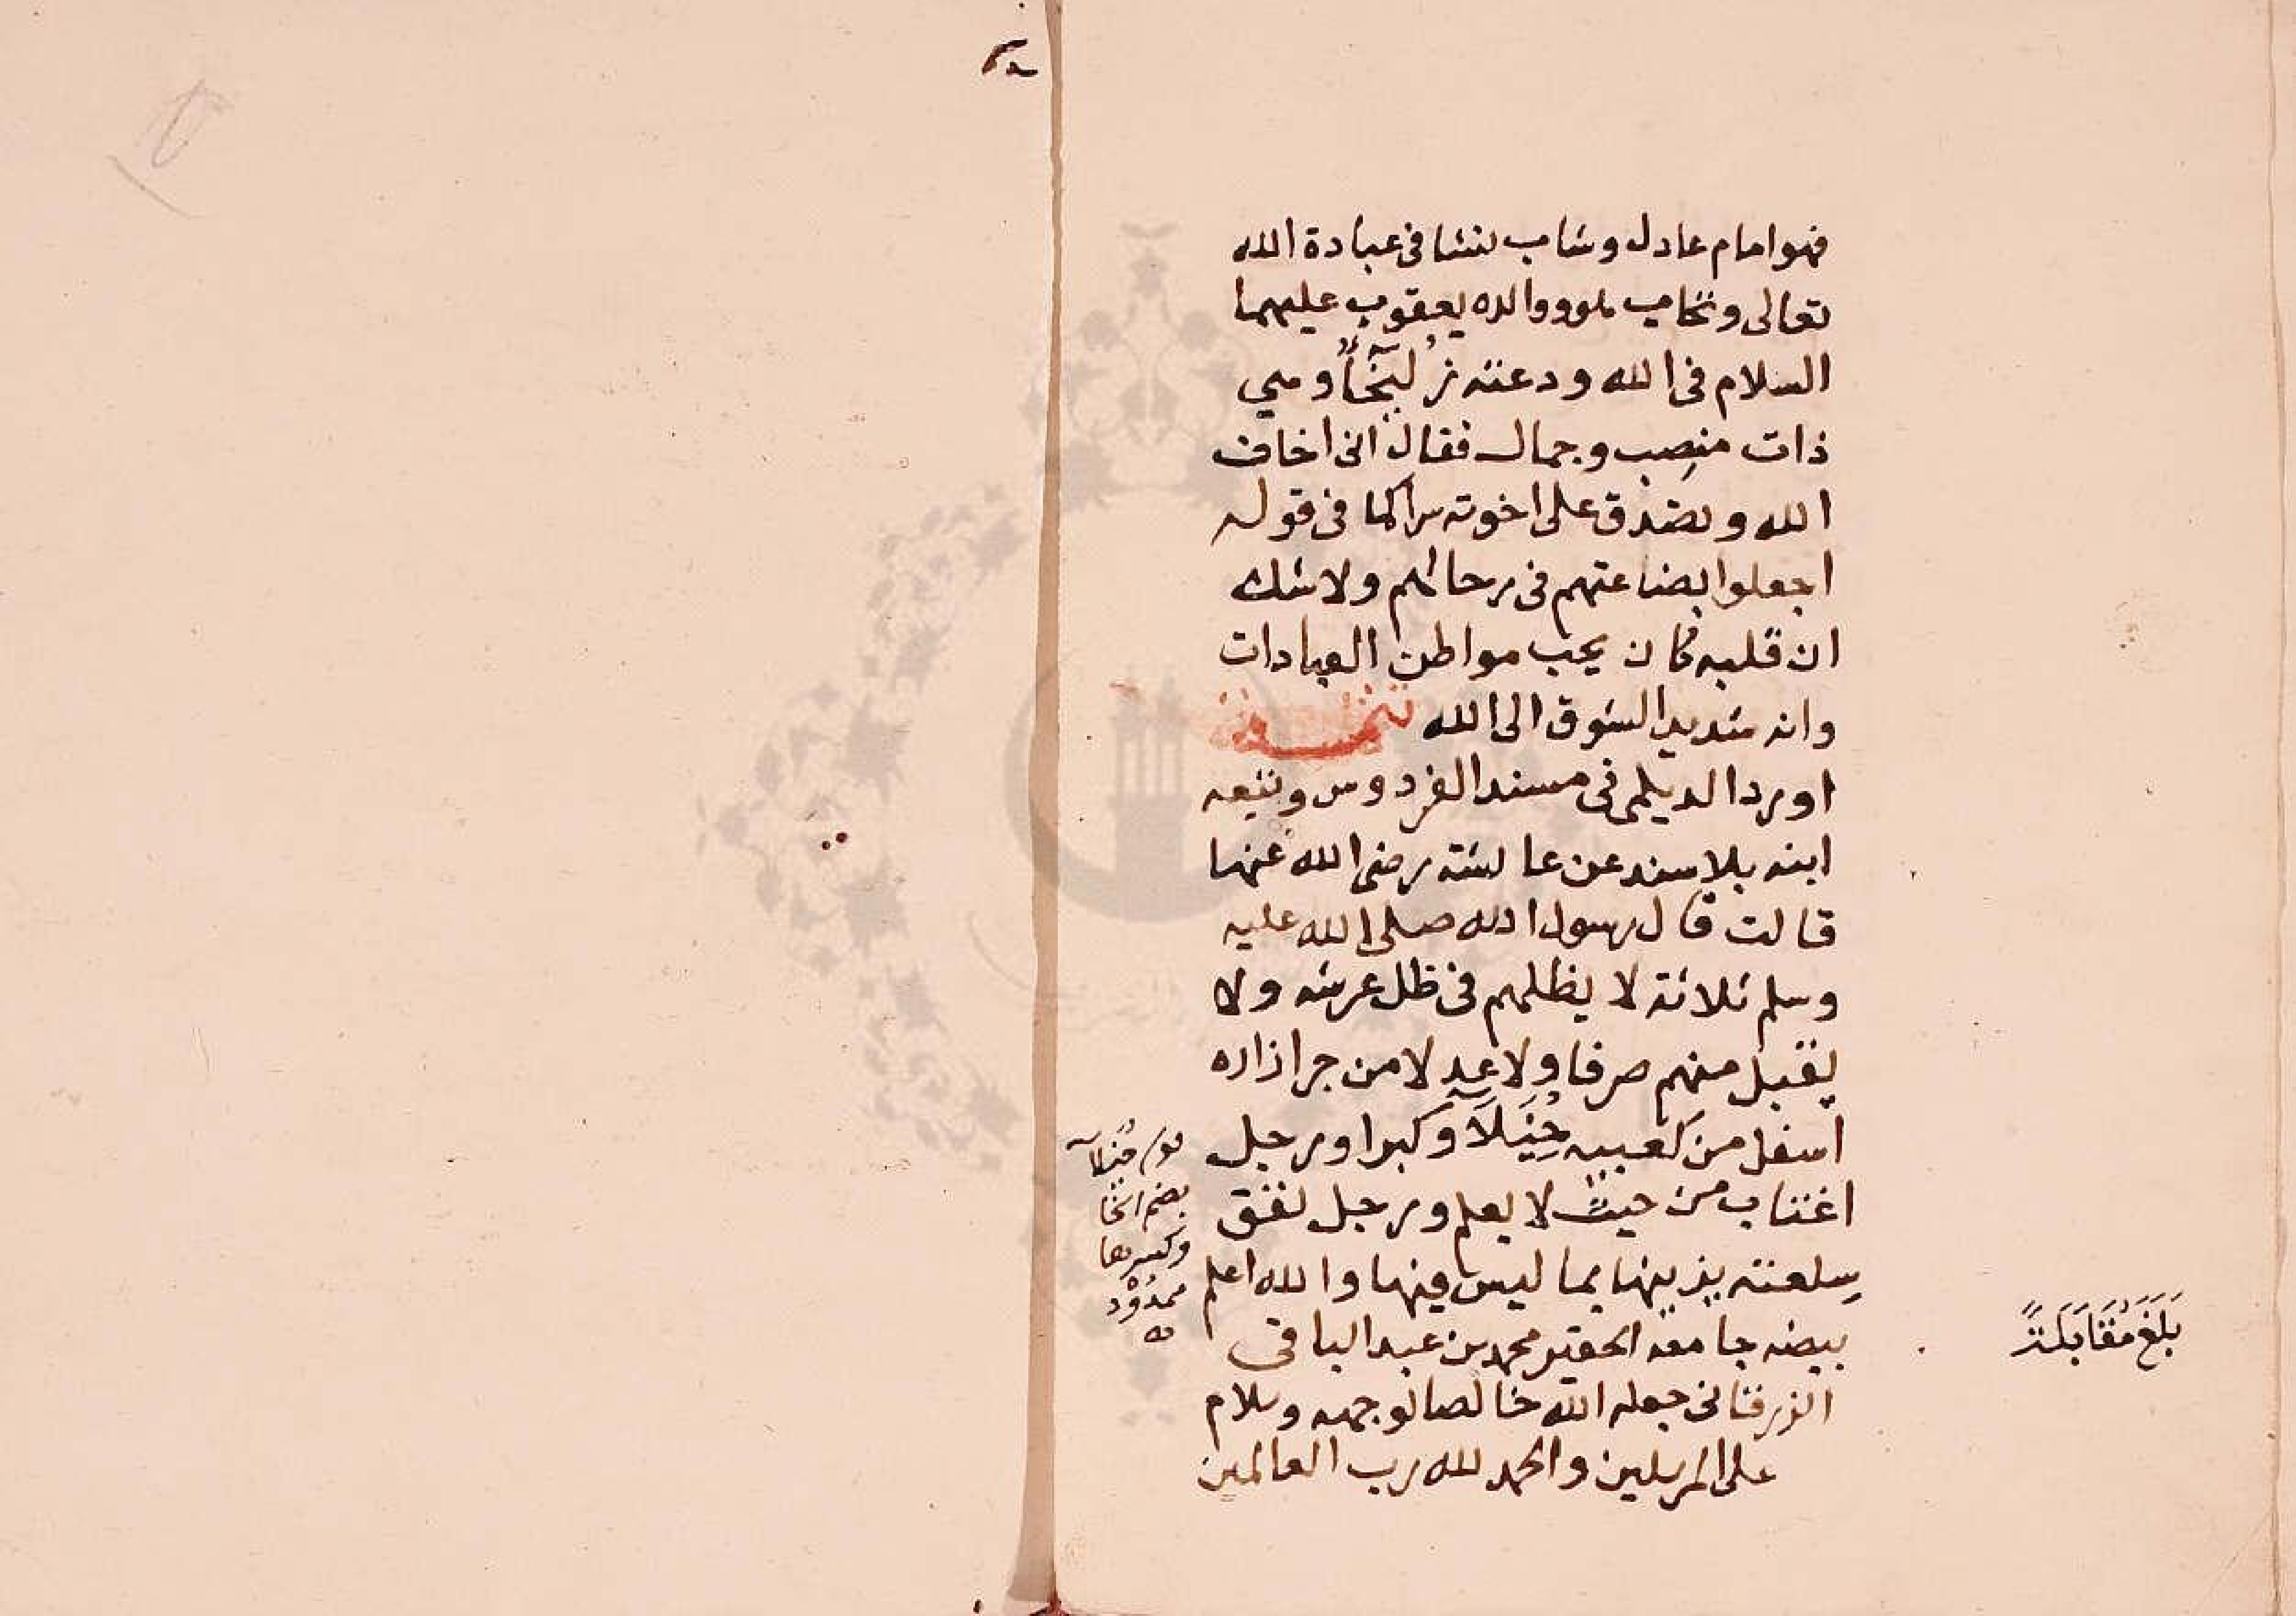 فهو امام عادل وشاب نشا فى عبادة الله
تعالى وتحابب هو ووالده يعقوب عليهما
السلام فى الله ودعته زُلَيْخَآ وهي
ذات منصب وجمال فقال انى اخاف
الله وتصدق على اخوته سرا كما فى قوله
اجعلوا بضاعتهم فى رحالهم ولا شك
ان قلبه كان يحب مواطن العبادات
وانه شديد الشوق الى الله
اورد الديلمى فى مسند الفردوس وتبعه
ابنه بلا سند عن عائشة رضى الله عنها
قالت قال رسول الله صلى الله عليه
وسلم ثلاثة لا يظلهم فى ظل عرشه ولا
يقبل منهم صرفا ولا عدلا من جر ازاره
اسفل من كعبيه خُيَلَآ وكبرا ورجل
اغتاب من حيث لا يعلم ورجل نفق
سلعته يزينها بما ليس فيها والله اعلم
بيضه جامعه الحقير محمد بن عبد الباقى
الزرقانى جعله الله خالصا لوجهه وسلام
على المرسلين والحمد لله رب العالمين
خيلآ
بضم الخا
وكسرها
ممدود
بَلَغَ مُقَابَلَةً